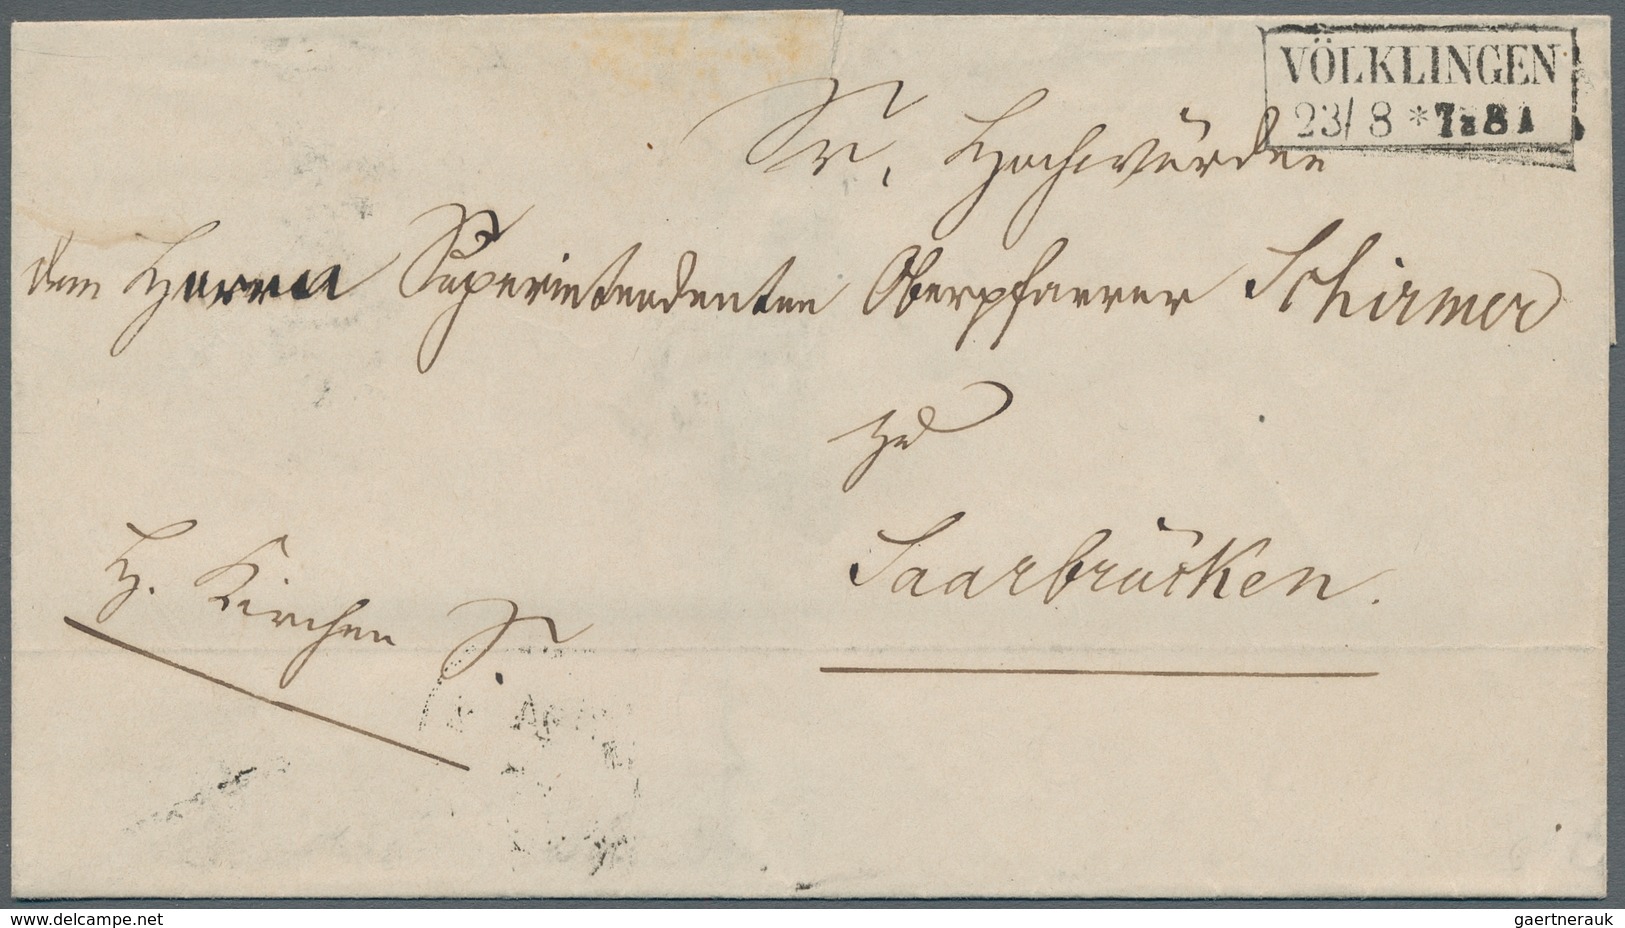 VÖLKLINGEN
23/ 8 *7-81
Sr. Hochwürden
dem Herrn Superintendenten Oberpfarrer Schirmer
zu
Saarbrücken.
H. Kirchen S.
www.delcampe.net
gaertnerauk